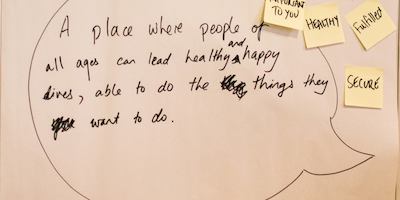 IMPORTANT
TO YOU
HEALTHY
Fulfilled
A place where people of
all ages can lead healthy and happy
lives, able to do the things they
want to do.
SECURE